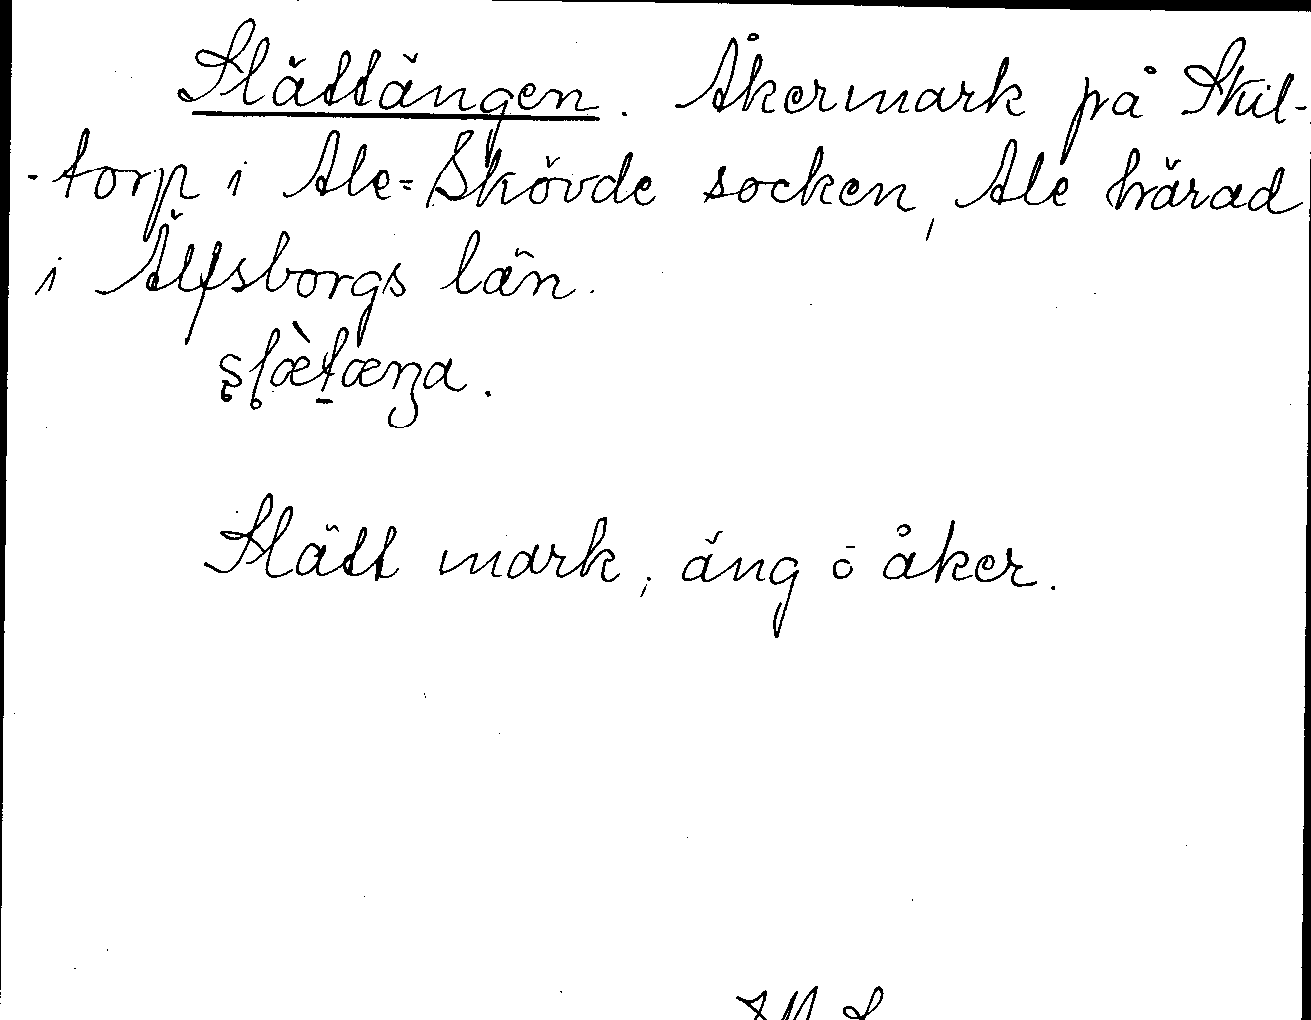 Slättängen. Åkermark på Skil-
-torp i Ale-Skövde socken, Ale härad
i Älfsborgs län.
Slätt mark, äng o åker.